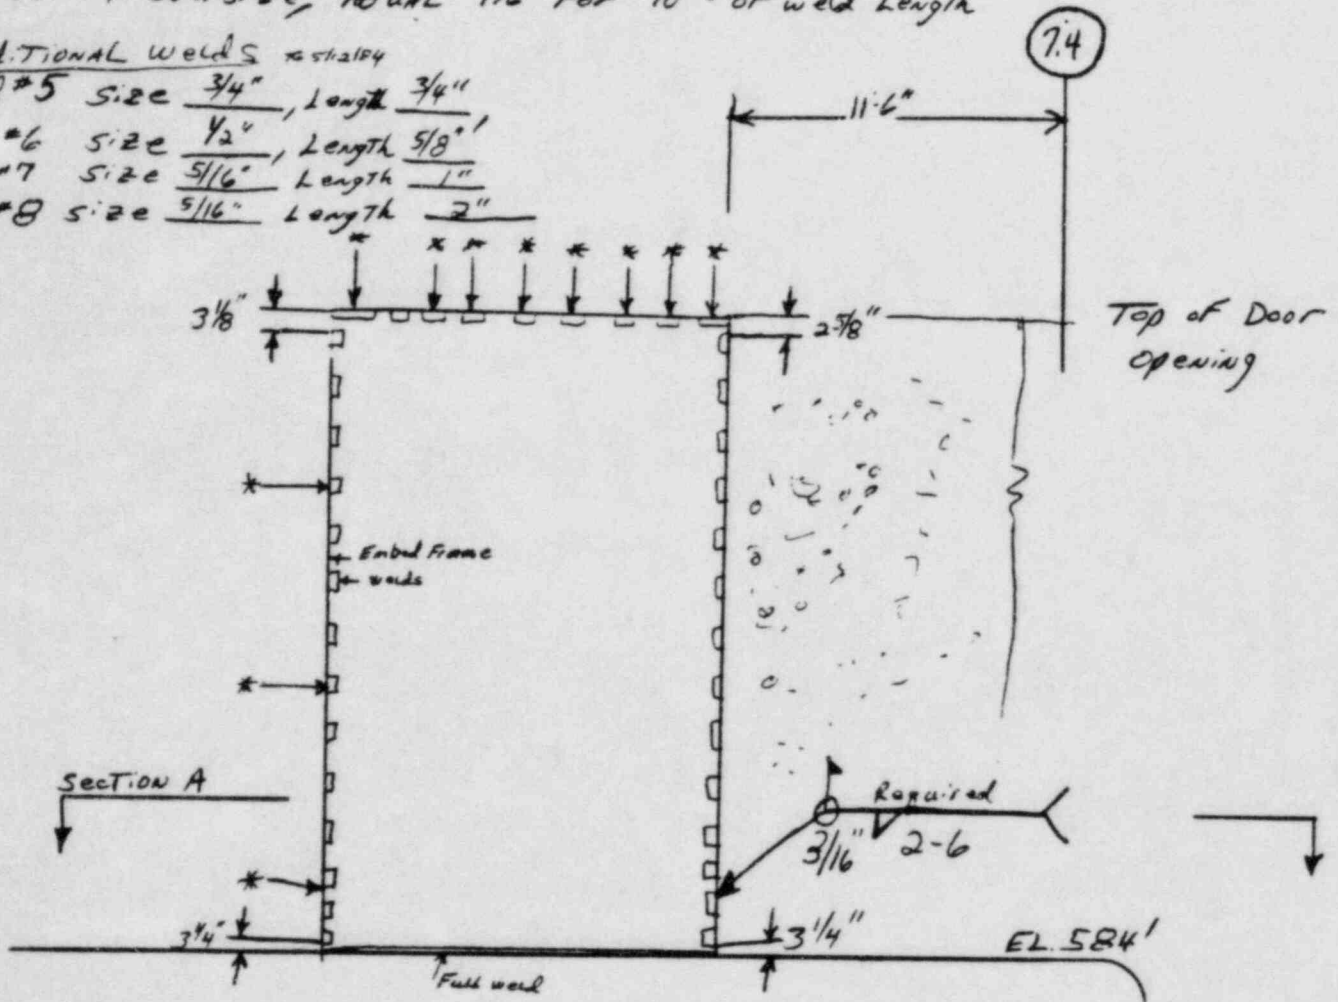 size, 1/16 For 10" of weld Length
7.4
Welds 5/12/84
#5 size 3/4", Length 3/4"
11-6"
#6 size 1/2", Length 5/8"
#7 size 5/16" Length 1"
#8 size 5/16" Length 2"
* * * * * * * *
3 1/8"
2 5/8"
Top of Door
Opening
*
Embed Frame
welds
*
Section A
Required
3/16" 2-6
*
3 1/4"
3 1/4"
EL. 584'
Full weld